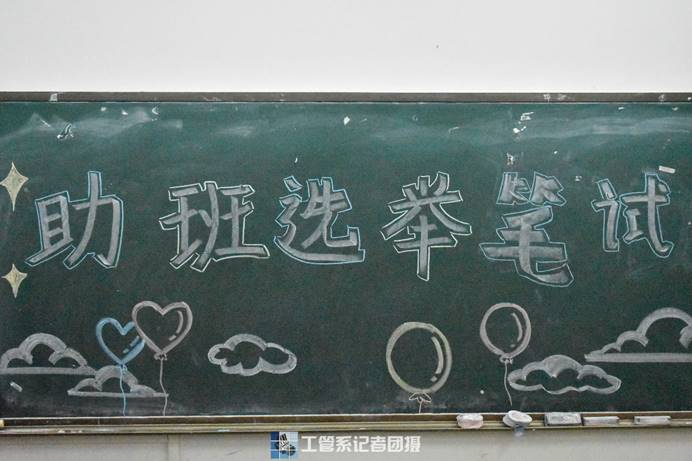 助班选举笔试
工管系记者团摄